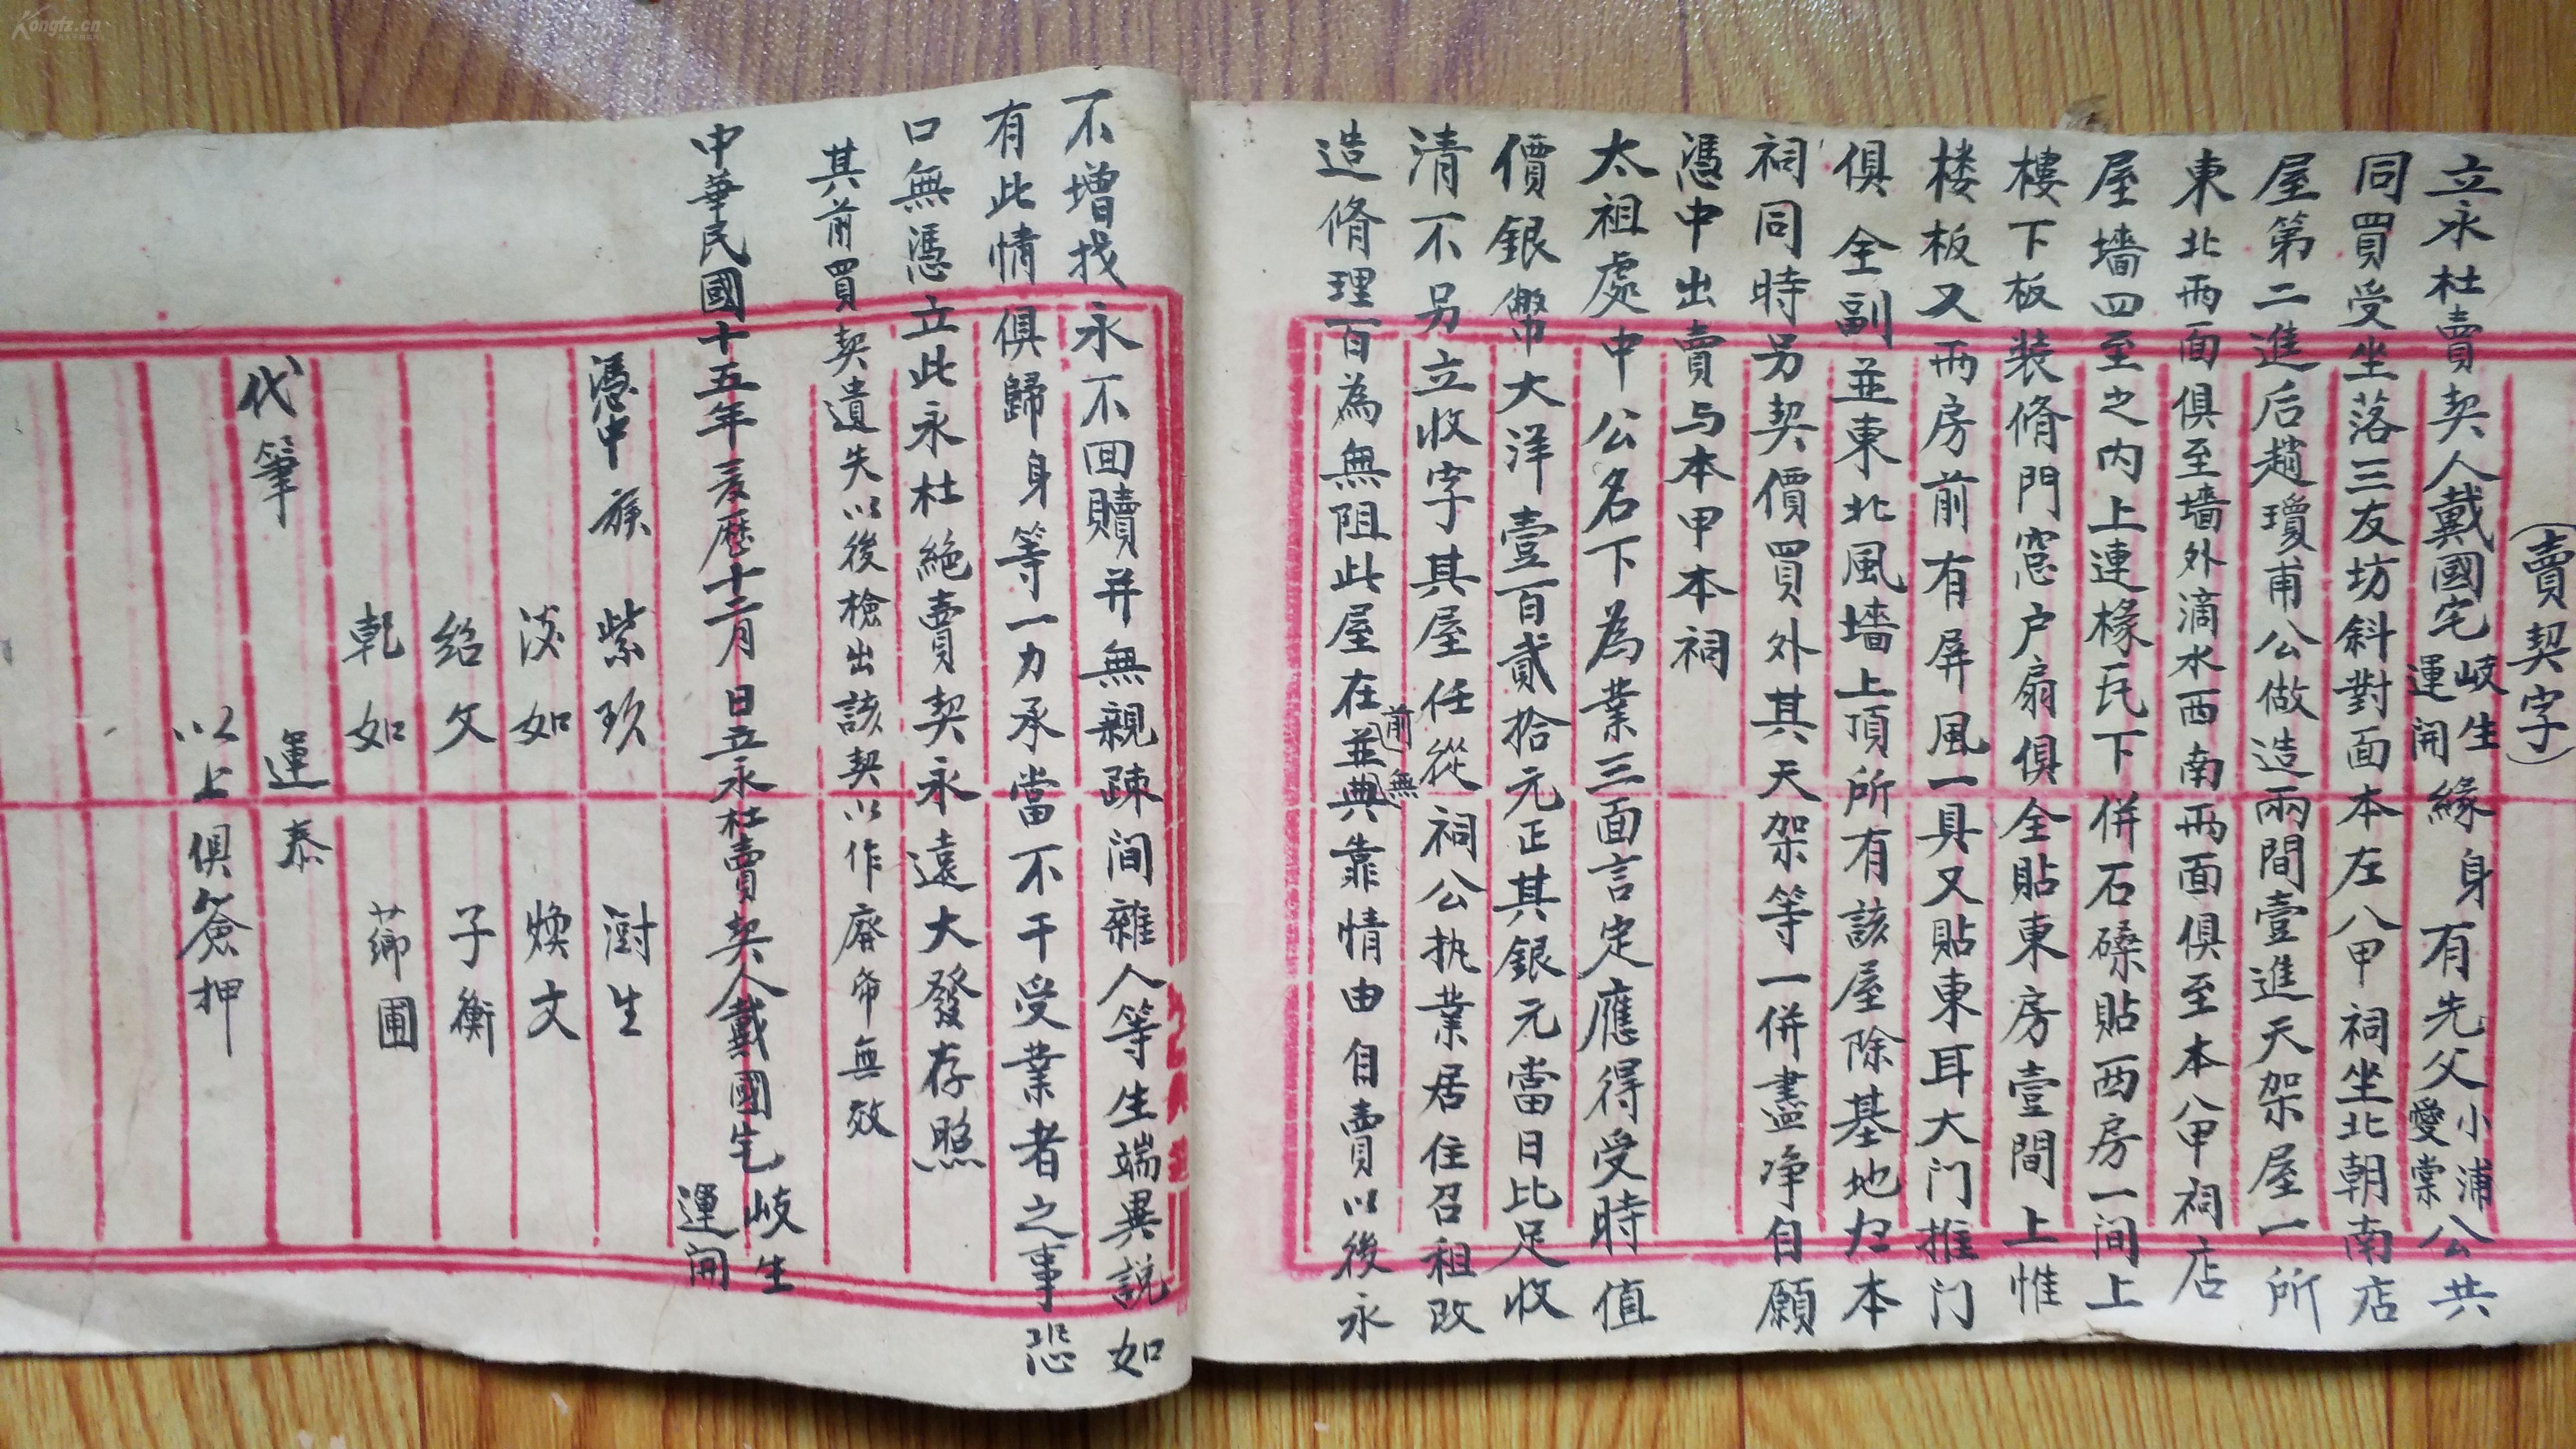 (賣契字)
立永杜賣契人戴國宅岐生運開緣身有先父小浦愛棠公共
同買受坐落三友坊斜對面本左八甲祠坐北朝南店
屋第二進后趙瓊甫公做造兩間壹進天架屋一所
東北兩面俱至墻外滴水西南兩面俱至本八甲祠店
屋墻四至之内上連椽瓦下併石磉貼西房一间上
樓下板装脩門窓户扇俱全貼東房壹間上惟
楼板又兩房前有屏風一具又貼東耳大门推门
俱全副並東北風墻上頂所有該屋除基地归本
祠同時另契價買外其天架等一併盡净自願
憑中出賣与本甲本祠
太祖處中公名下為業三面言定應得受時值
價銀幣大洋壹百貳拾元正其銀元當日比足收
清不另立收字其屋任從祠公执業居住召租改
造脩理百為無阻此屋在前並無典靠情由自賣以後永
不增找永不回贖并無親疎间雜人等生端異説如
有此情俱歸身等一力承當不干受業者之事恐
口無憑立此永杜絕賣契永遠大發存照
其前買契遺失以後檢出該契以作廢帋無效
中華民國十五年夏歷十二月日立永杜賣契人戴國宅岐生運開
憑中族紫玖澍生
浚如煥文
绍文子衡
乾如蒓圃
代筆運泰
以上俱簽押
Kongfz.cn